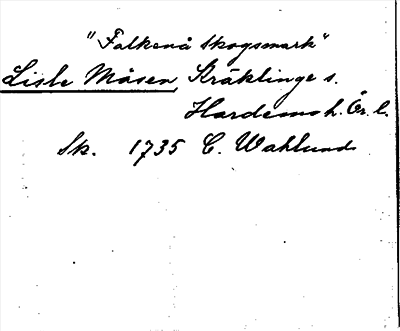 "Falkenå Skogsmark"
Lisle Måsen, Kräklinge s.
Hardemo h. Ör. l.
Sk. 1735 C. Wahlund